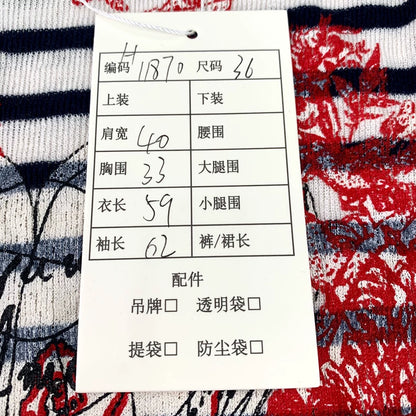 编码 H11870 尺码 36
上装 下装
肩宽 40 腰围
胸围 33 大腿围
衣长 59 小腿围
袖长 62 裤/裙长
配件
吊牌□ 透明袋□
提袋□ 防尘袋□